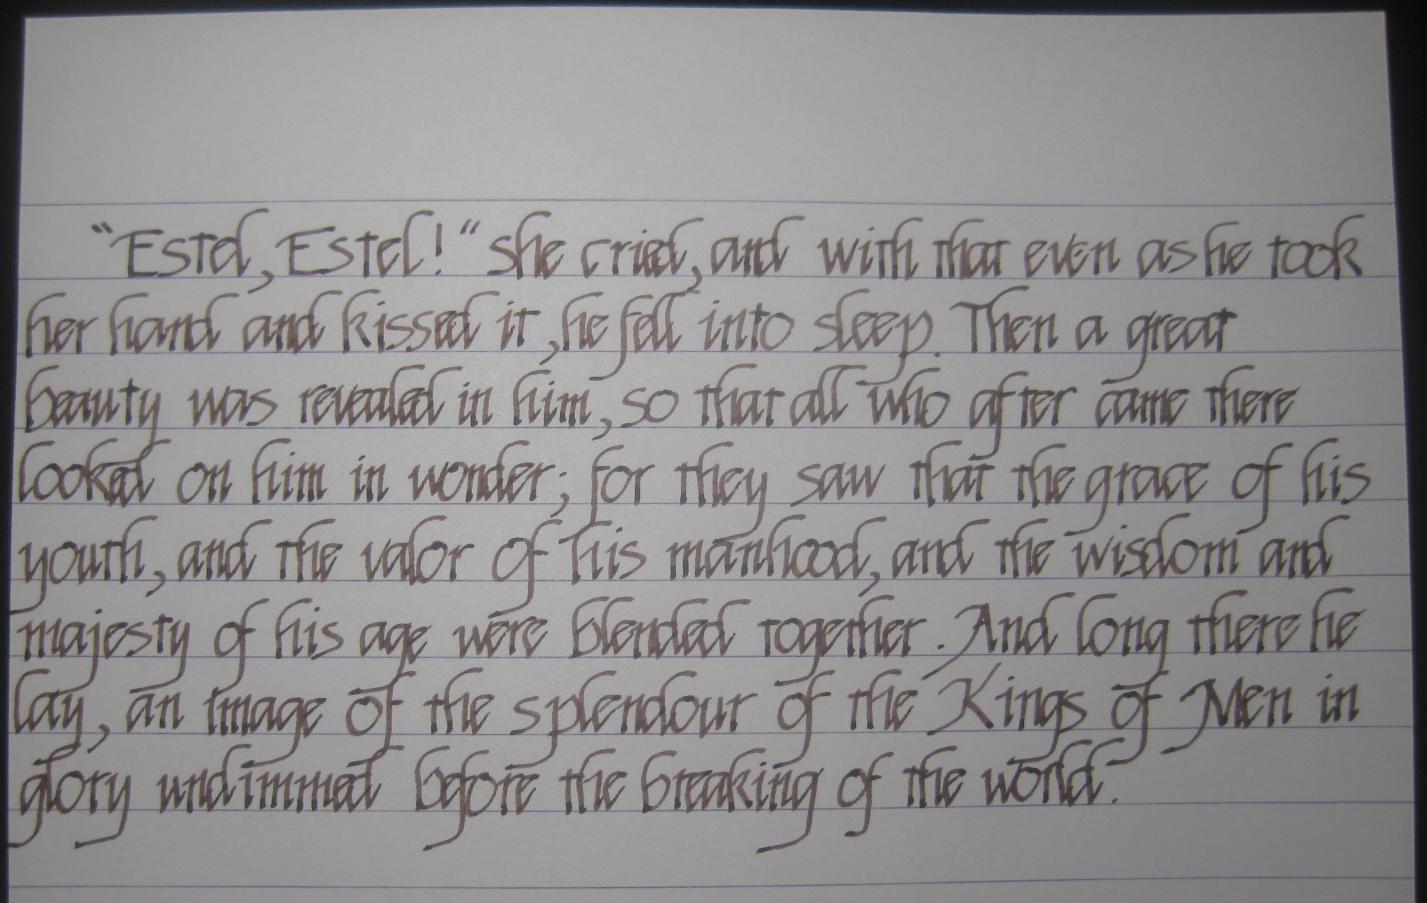 "Estel, Estel!" she cried, and with that even as he took
her hand and kissed it, he fell into sleep. Then a great
beauty was revealed in him, so that all who after came there
looked on him in wonder; for they saw that the grace of his
youth, and the valor of his manhood, and the wisdom and
majesty of his age were blended together. And long there he
lay, an image of the splendour of the Kings of Men in
glory undimmed before the breaking of the world.